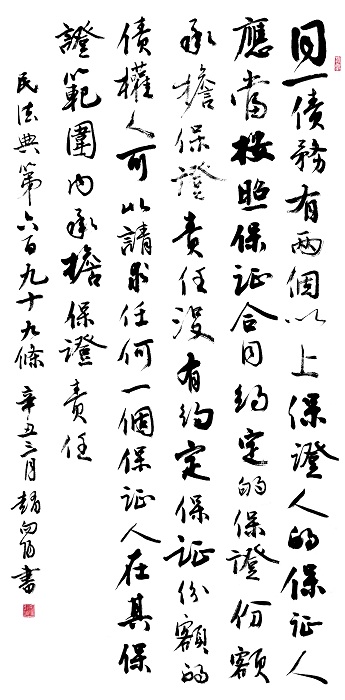 同一債務有兩個以上保證人的保证人
應當按照保证合同約定的保證份額
承擔保證責任没有約定保证份額的
債權人可以請求任何一個保证人在其保
證範圍内承擔保證責任
民法典第六百九十九條 辛丑三月趙向書